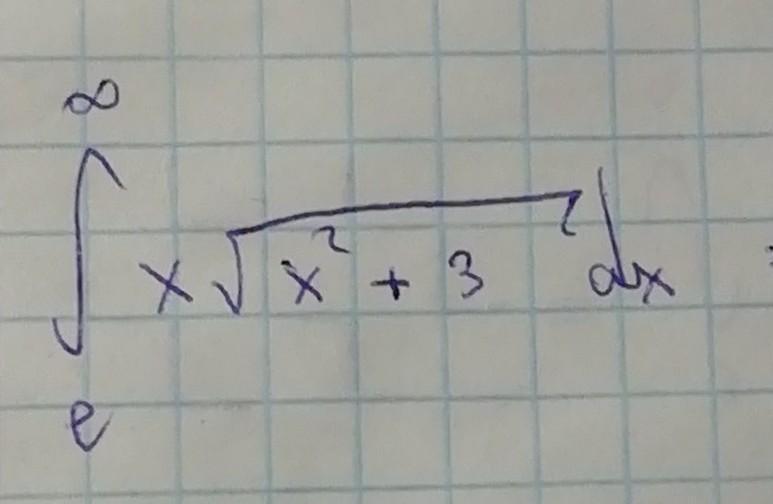 ∫_e^∞ x√(x² + 3) dx